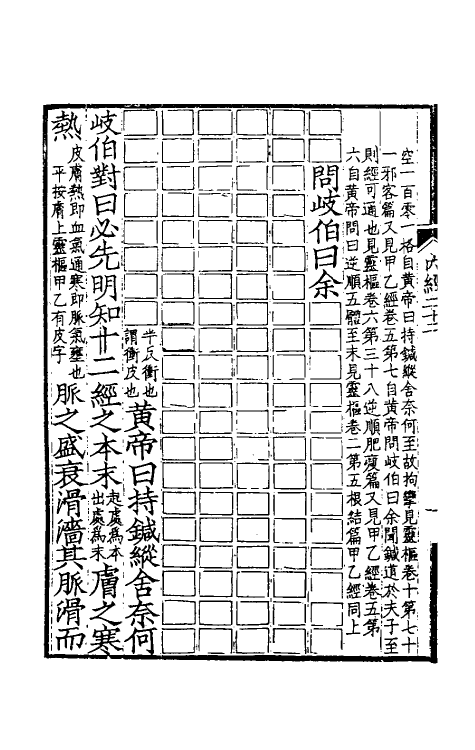 內經二十二
空一百零一格自黃帝曰持鍼縱舍奈何至故拘攣見靈樞卷十第七十
一邪客篇又見甲乙經卷五第七自黃帝問岐伯曰余聞鍼道於夫子至
則經可通也見靈樞卷六第三十八逆順肥瘦篇又見甲乙經卷五第
六自黃帝問曰逆順五體至末見靈樞卷二第五根結篇甲乙經同上
問岐伯曰余
半反衝也
謂衝皮也
黃帝曰持鍼縱舍奈何
岐伯對曰必先明知十二經之本末
起處為本
出處為末
膚之寒
熱
皮膚熱即血氣通寒即脈氣壅也
平按膚上靈樞甲乙有皮字
脈之盛衰滑濇其脈滑而